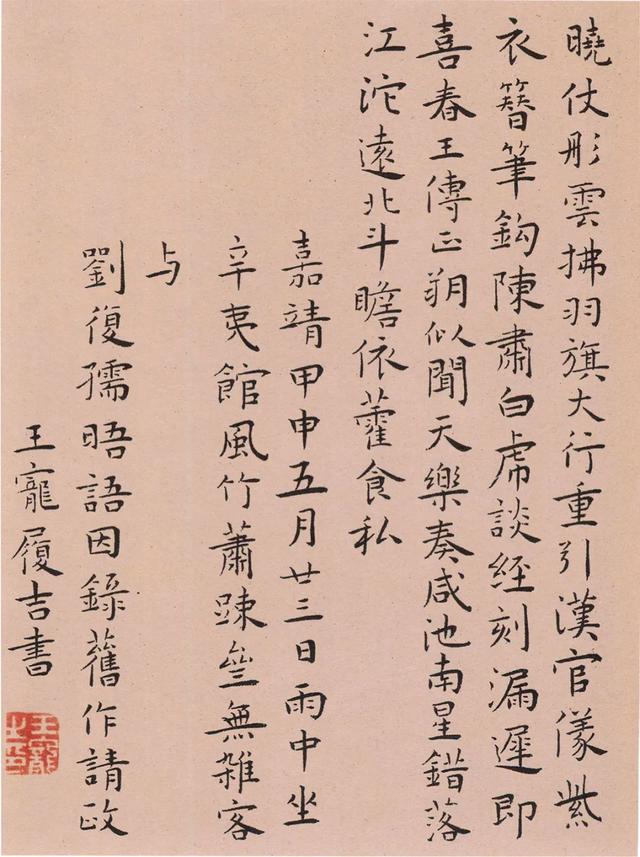 曉仗彤雲拂羽旗大行重引漢官儀紫
衣簪筆鈎陳肅白虎談經刻漏遲即
喜春王傳正朔似聞天樂奏咸池南星錯落
江沱遠北斗瞻依藿食私
嘉靖甲申五月廿三日雨中坐
辛夷館風竹蕭踈並無雜客
与
劉復孺晤語因錄舊作請政
王寵履吉書
王寵之印